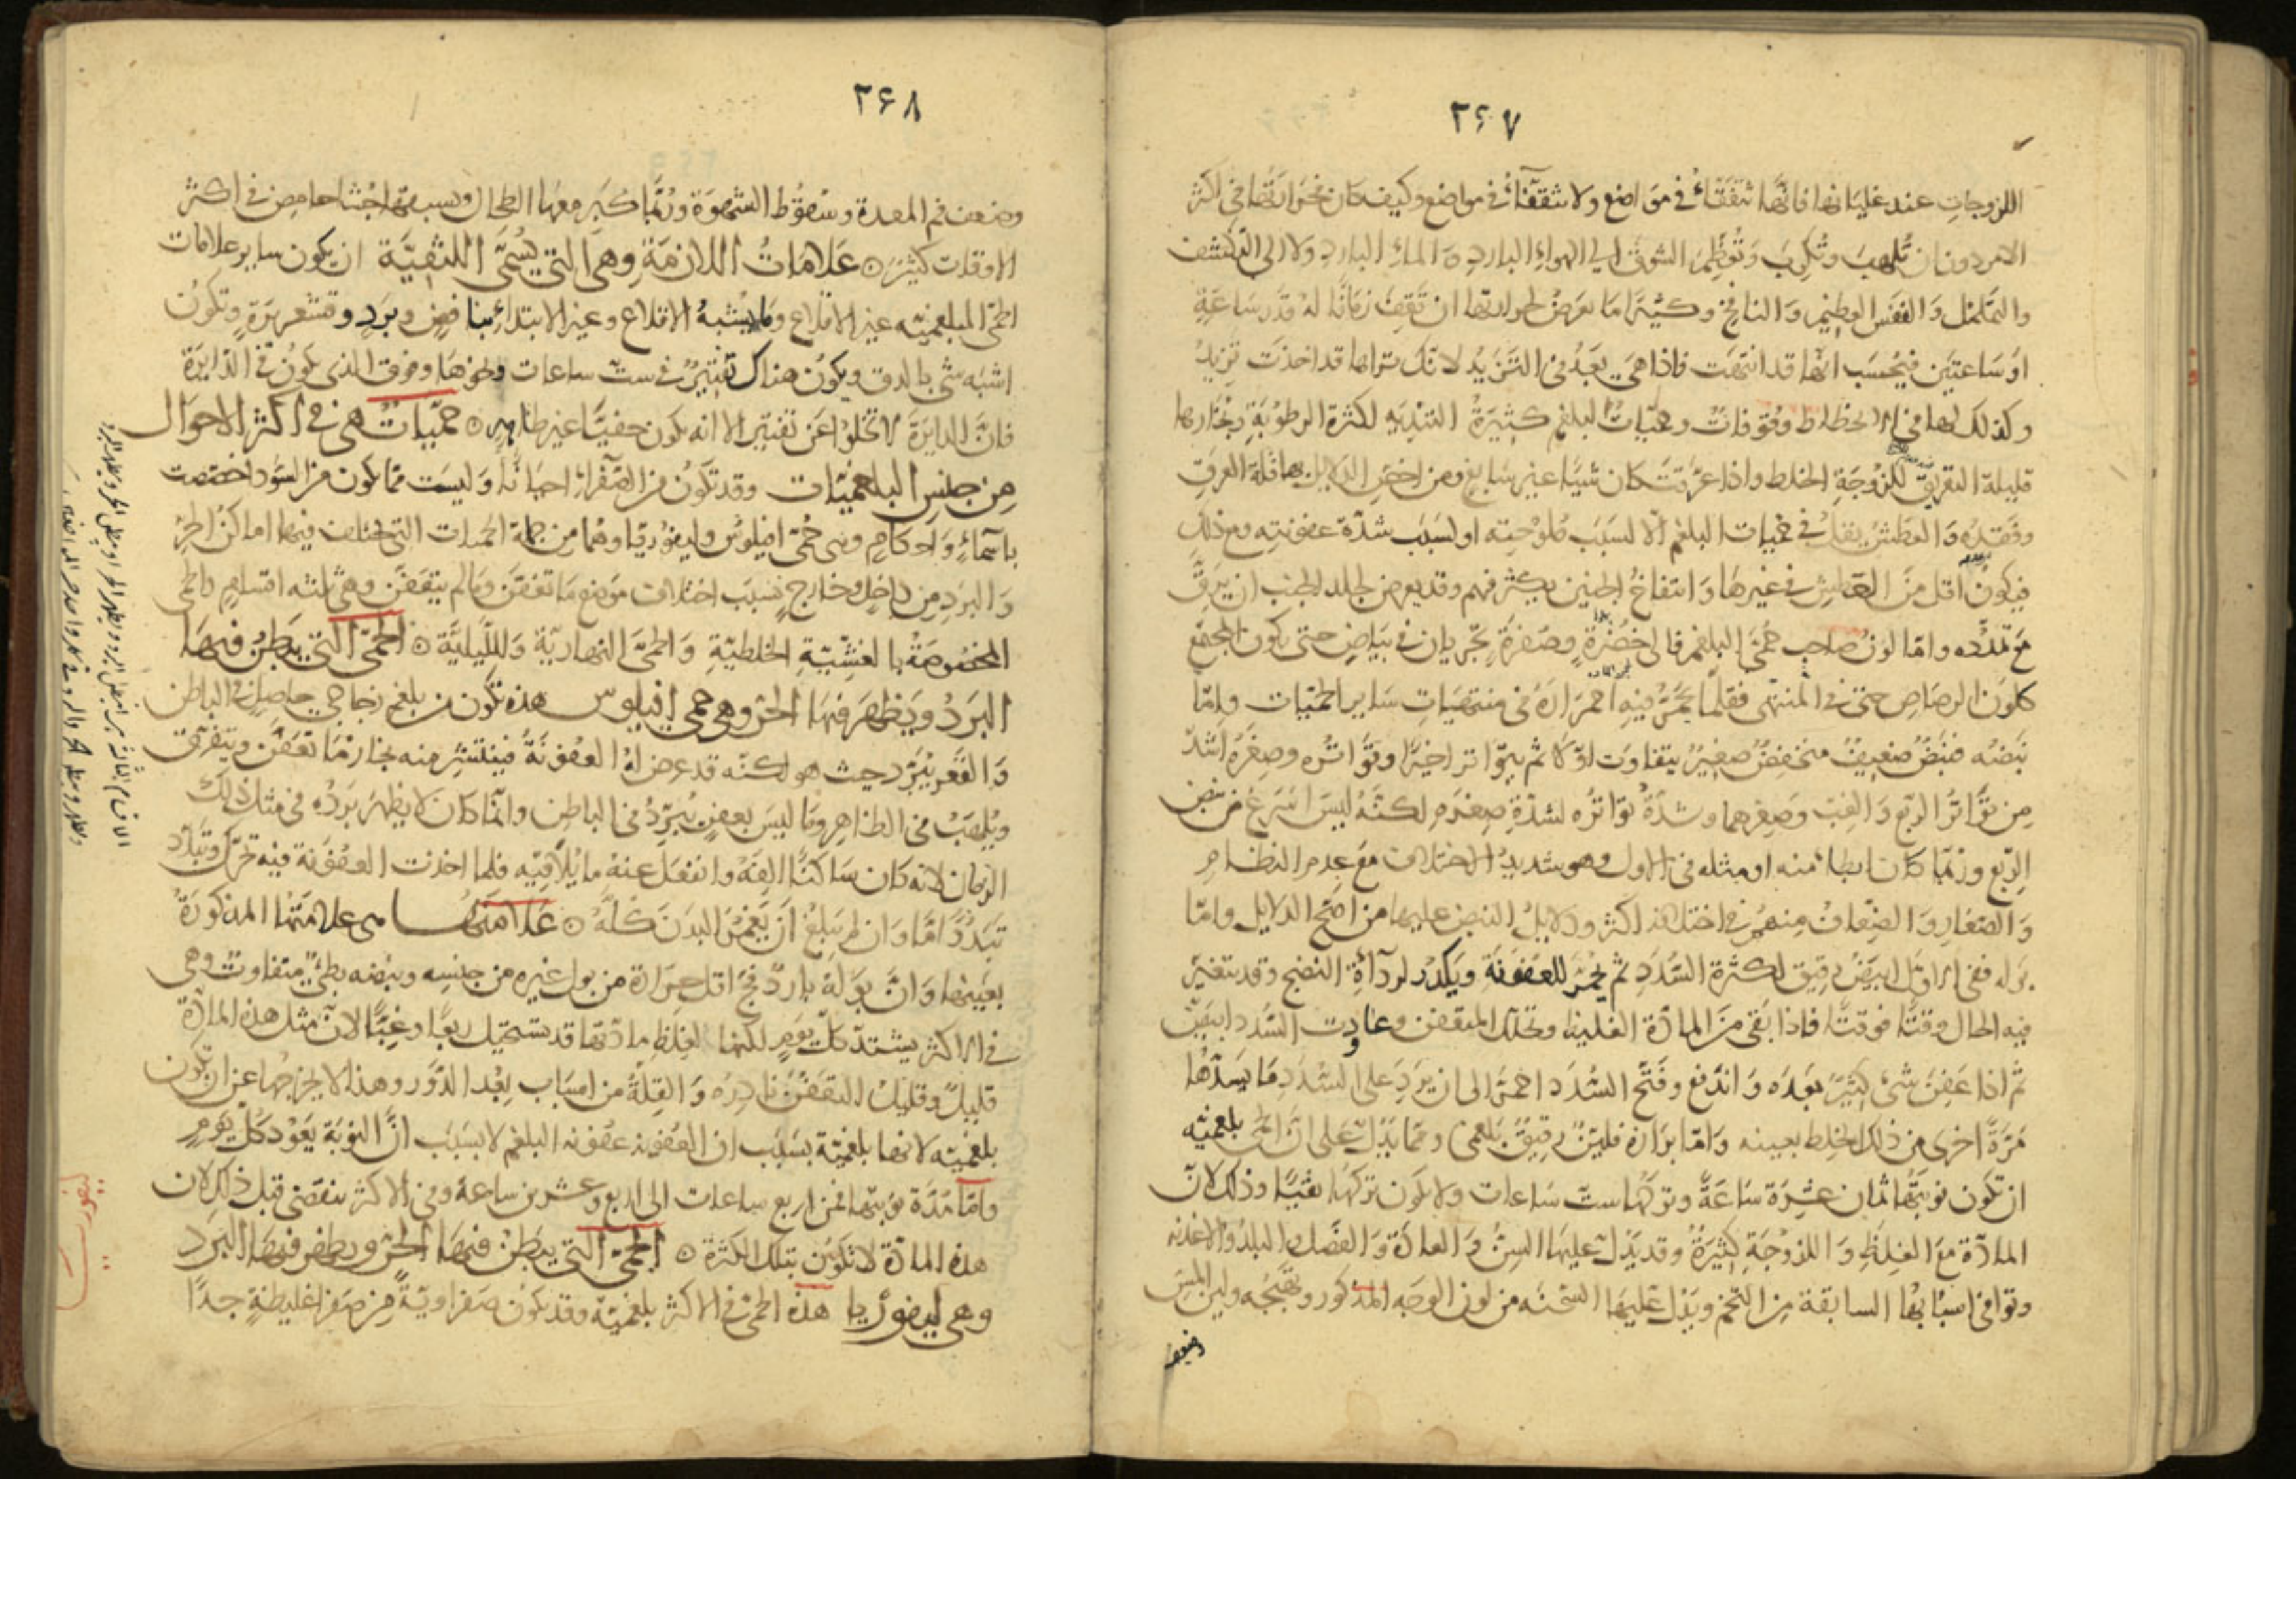 ٢٤٧
اللزوجات عند غليانها فانها تتفقأ في مواضع ولا تتفقأ في مواضع وكيف كان فحرارتها في اكثر
الامر دون ان تلهب وتكرب وتعظم الشوق الى الهواء البارد والماء البارد ولا الى التكشف
والتململ والنفس العظيم والنافخ وكثيرا ما يعرض لحرارتها ان تقف زمانا له قدر ساعة
او ساعتين فيحسب انها قد انتهت فاذا هي بعد في التزيد لانك تراها قد اخذت تزيد
وكذلك لها في الانحطاط وقوفات وحميات البلغم كثيرة التندية لكثرة الرطوبة وبخارها
قليلة التعريق للزوجة الخلط واذا عرقت كان شيئا غير سابغ ومن اخص الدلايل بها قلة العرق
وفقده والعطش يقل في حميات البلغم الا لسبب ملوحته او لسبب شدة عفونته ومع ذلك
فيكون اقل من العطش في غيرها وانتفاخ الجنبين يكثر فيهم وقد يعرض لجلد الجنب ان يرق
مع تمدده واما لون صاحب حمى البلغم فالى خضرة وصفرة تجريان في بياض حتى يكون المجتمع
كلون الرصاص حتى في المنتهى فقلما يحمر فيه احمراره في منتهيات ساير الحميات واما
نبضه فنبض ضعيف منخفض صغير يتفاوت اولا ثم يتواتر اخيرا وتواتره وصغره اشد
من تواتر الربع والغب وصغرهما وشدة تواتره لشدة صغره لكنه ليس اسرع من نبض
الربع وربما كان ابطأ منه او مثله في الاول وهو شديد الاختلاف مع عدم النظام
والصغار والضعاف منهم في اختلافه اكثر ودلايل النبض عليها من اصح الدلايل واما
بوله ففي الاول ابيض رقيق لكثرة السدد ثم يحمر للعفونة ويكدر لرداءة النضج وقد يتغير
فيه الحال وقتا فوقتا فاذا بقى من المادة الغليظة وتحلل المتعفن وعاودت السدد ابيض
ثم اذا عفن شيء كثير بعده واندفع وفتح السدد احمر الى ان يرد على السدد ما يسدها
مرة اخرى من ذلك الخلط بعينه واما برازه فلين رقيق بلغمي ومما يدل على ان الحمى بلغمية
ان تكون نوبتها ثمان عشرة ساعة وتركها ست ساعات ولا يكون تركها نقيا وذلك لان
المادة مع الغلظ واللزوجة كثيرة وقد يدل عليها السن والعادة والفصل والبلد والاغذية
وتوافي اسبابها السابقة من التخم ويدل عليها السحنة من لون الوجه المذكور وتهيجه ولين الملمس
وضعف
٢٤٨
وضعف فم المعدة وسقوط الشهوة وربما كبر معها الطحال ويسبقها جشاء حامض في اكثر
الاوقات كثير ۞ علامات اللازمة وهي التي تسمى اللثقية ان يكون ساير علامات
الحمى البلغمية غير الاقلاع وما يشبه الاقلاع وغير الابتداء بنافض وبرد وقشعريرة وتكون
اشبه شي بالدق ويكون هناك تفتير في ست ساعات ونحوها وفوق الذي يكون في الدايرة
فان الدايرة لا تخلوا عن تفتير الا انه يكون خفيا غير ظاهر ۞ حميات هي في اكثر الاحوال
من جنس البلغميات وقد تكون من الصفراء احيانا وليست مما يكون من السودا اختصت
باسماء واحكام وهي حمى انفيلوس وليفوريا وهما من جملة الحميات التي تختلف فيها اماكن الحر
والبرد من داخل وخارج بسبب اختلاف موضع ما تعفن وما لم يتعفن وهي ثلثه اقسام والحمى
المخصوصة بالغشيية الخلطية والحمى النهارية والليلية ۞ الحمى التي يبطن فيها
البرد ويظهر فيها الحر وهي حمى انفيلوس هذه تكون من بلغم زجاجي حاصل في الباطن
والقعر يبرد حيث هو لكنه قد عرض له العفونة فينتشر منه بخار ما تعفن ويتفرق
ويلهب في الظاهر وما ليس بعفن يبرد في الباطن وانما كان لا يظهر برده في مثل ذلك
الزمان لانه كان ساكنا الفه وانفعل عنه ما يلاقيه فلما اخذت العفونة فيه تحرك وتبدد
تبددا ما وان لم يبلغ ان يعم البدن كله ۞ علامتها هي علامتها المذكورة
بعينها وان بوله بارد فج اقل حرارة من بول غيره من جنسه ونبضه بطيء متفاوت وهي
في الاكثر يشتد كل يوم لكنها لغلظ مادتها قد تستحيل ربعا وغبا لان مثل هذه المادة
قليل وقليل التعفن نادره والقلة من اسباب بعد الدور وهذا لا يخرجها عن ان تكون
بلغمية لانها بلغمية بسبب ان العفونة عفونة البلغم لا بسبب ان النوبة يعود كل يوم
واما مدة نوبتها فمن اربع ساعات الى اربع وعشرين ساعة وفي الاكثر ينقضى قبل ذلك لان
هذه المادة لا تكون بتلك الكثرة ۞ الحمى التي يبطن فيها الحر ويظهر فيها البرد
وهي ليفوريا هذه الحمى في الاكثر بلغمية وقد يكون صفراوية من صفرا غليظة جدا